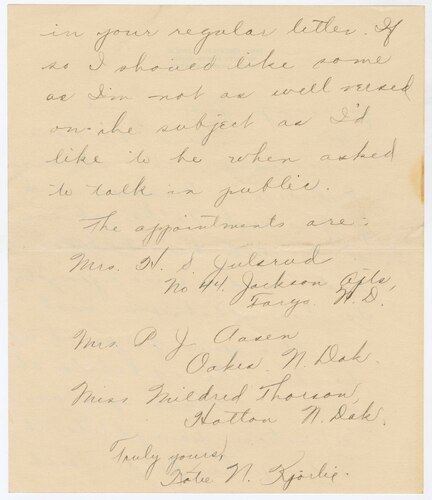 in your regular letter. If
so I should like some
as I'm not as well versed
on the subject as I'd
like to be when asked
to talk in public.
The appointments are:
Mrs. H. S. Julsrud
No 44. Jackson Apts,
Fargo. N. D.
Mrs. P. J. Aasen
Oakes N. Dak.
Miss Mildred Thorson,
Hatton N. Dak.
Truly yours,
Katie N. Kjorlie.